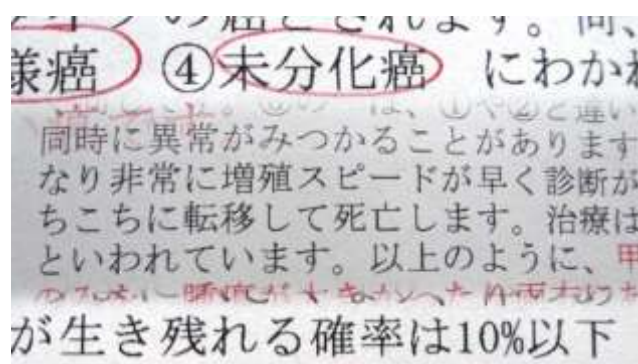 の癌とされます。尚、
様癌 ④未分化癌 にわかれ
は、①や②と違い
同時に異常がみつかることがあります
なり非常に増殖スピードが早く診断が
ちこちに転移して死亡します。治療は
といわれています。以上のように、甲
が生き残れる確率は10%以下